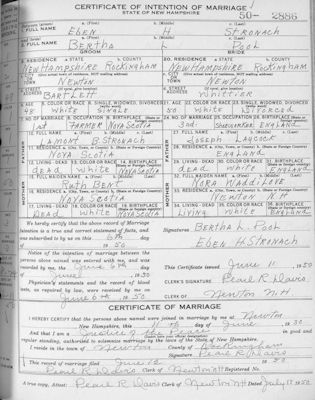 CERTIFICATE OF INTENTION OF MARRIAGE
STATE OF NEW HAMPSHIRE
50- 2886
1. FULL NAME a. (First) b. (Middle) c. (Last)
Eben H Stronach
GROOM
2. FULL NAME a. (First) b. (Middle) c. (Last)
Bertha L Pool
BRIDE
3. RESIDENCE a. STATE b. COUNTY
New Hampshire Rockingham
RESIDENCE a. STATE b. COUNTY
New Hampshire Rockingham
CITY OR TOWN Newton
CITY OR TOWN Newton
STREET ADDRESS
Bartlett
STREET ADDRESS
Whittier
AGE COLOR OR RACE SINGLE, WIDOWED, DIVORCED
48 White Single
AGE 22. COLOR OR RACE 23. SINGLE, WIDOWED, DIVORCED
50 White Divorced
NO. OF MARRIAGE OCCUPATION BIRTHPLACE
1st Farmer Nova Scotia
24. NO. OF MARRIAGE 25. OCCUPATION 26. BIRTHPLACE
3rd England
FATHER
FULL NAME
Lamont B. Stronach
27. FULL NAME
Joseph Laycock
RESIDENCE
Nova Scotia
RESIDENCE
England
LIVING - DEAD COLOR OR RACE BIRTHPLACE
dead White Nova Scotia
LIVING - DEAD COLOR OR RACE BIRTHPLACE
dead White England
MOTHER
FULL MAIDEN NAME
Ruth Bent
FULL MAIDEN NAME
Nora Waddilove
RESIDENCE
Nova Scotia
RESIDENCE
Newton N.H.
LIVING - DEAD COLOR OR RACE BIRTHPLACE
Dead White Nova Scotia
LIVING - DEAD COLOR OR RACE BIRTHPLACE
Living White England
We hereby certify that the above record of Marriage
Intention is a true and correct statement of facts, and
was subscribed to by us on this 6th day
of 1950
Signatures Bertha L. Pool
Eben H Stronach
Notice of the intention of marriage between the
persons above named was entered with me, and was
recorded by me, the June 6th day
of June 1950
This Certificate issued June 11 1950
Physician's statements and the record of blood
tests, as required by law, were received by me on
June 6th 1950
CLERK'S SIGNATURE Pearl R Davis
CLERK OF Newton N.H.
CERTIFICATE OF MARRIAGE
I HEREBY CERTIFY that the above persons were joined in marriage by me at Newton
New Hampshire, this 11th day of June 1950
And that I am a Justice of the Peace in good and
regular standing, authorized to solemnize marriage by the laws of the State of New Hampshire.
I reside in the town of Newton County of Rockingham
Signature Pearl R. Davis
This record of marriage filed June 12 1950
Pearl R Davis Clerk of Newton N.H. Registered No.
A true copy, Attest: Pearl R Davis Clerk of Newton N.H. Dated July 17 1950